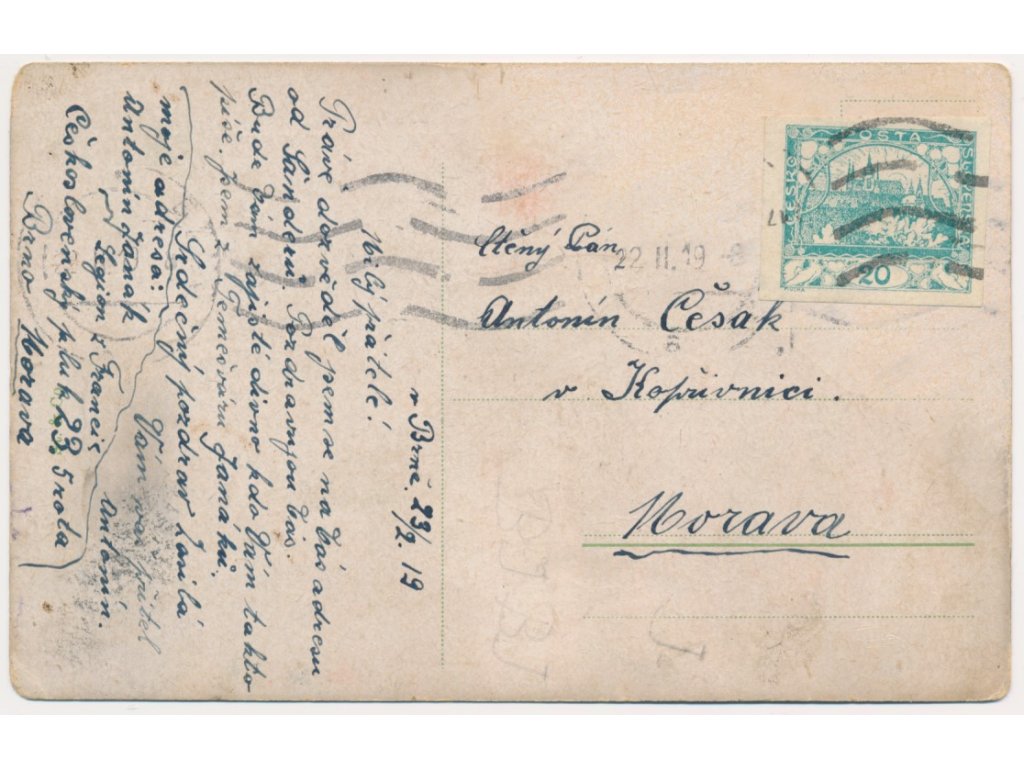 v Brně. 23/2. 19
Milý přátelé!
Právě dozvěděl jsem se na Vás adresu
od Šanderů Pozdravujou Vás.
Bude Vám zajisté divno kdo Vám takto
píše. jsem z Temešváru Janáků.
Srdečný pozdrav zasílá
Vám váš přítel
Antonín.
moje adresa:
Antonín Janák
Legion z Francie
Československý pluk 23. 5 rota
Brno Morava
Ctěný Pán
Antonín Češak
v Kopřivnici.
Morava
POŠTA
ČESKO
SLOVENSKÁ
20
22 II. 19